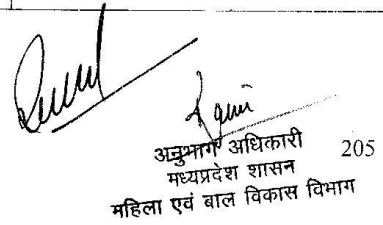 अनुभाग अधिकारी 205
मध्यप्रदेश शासन
महिला एवं बाल विकास विभाग